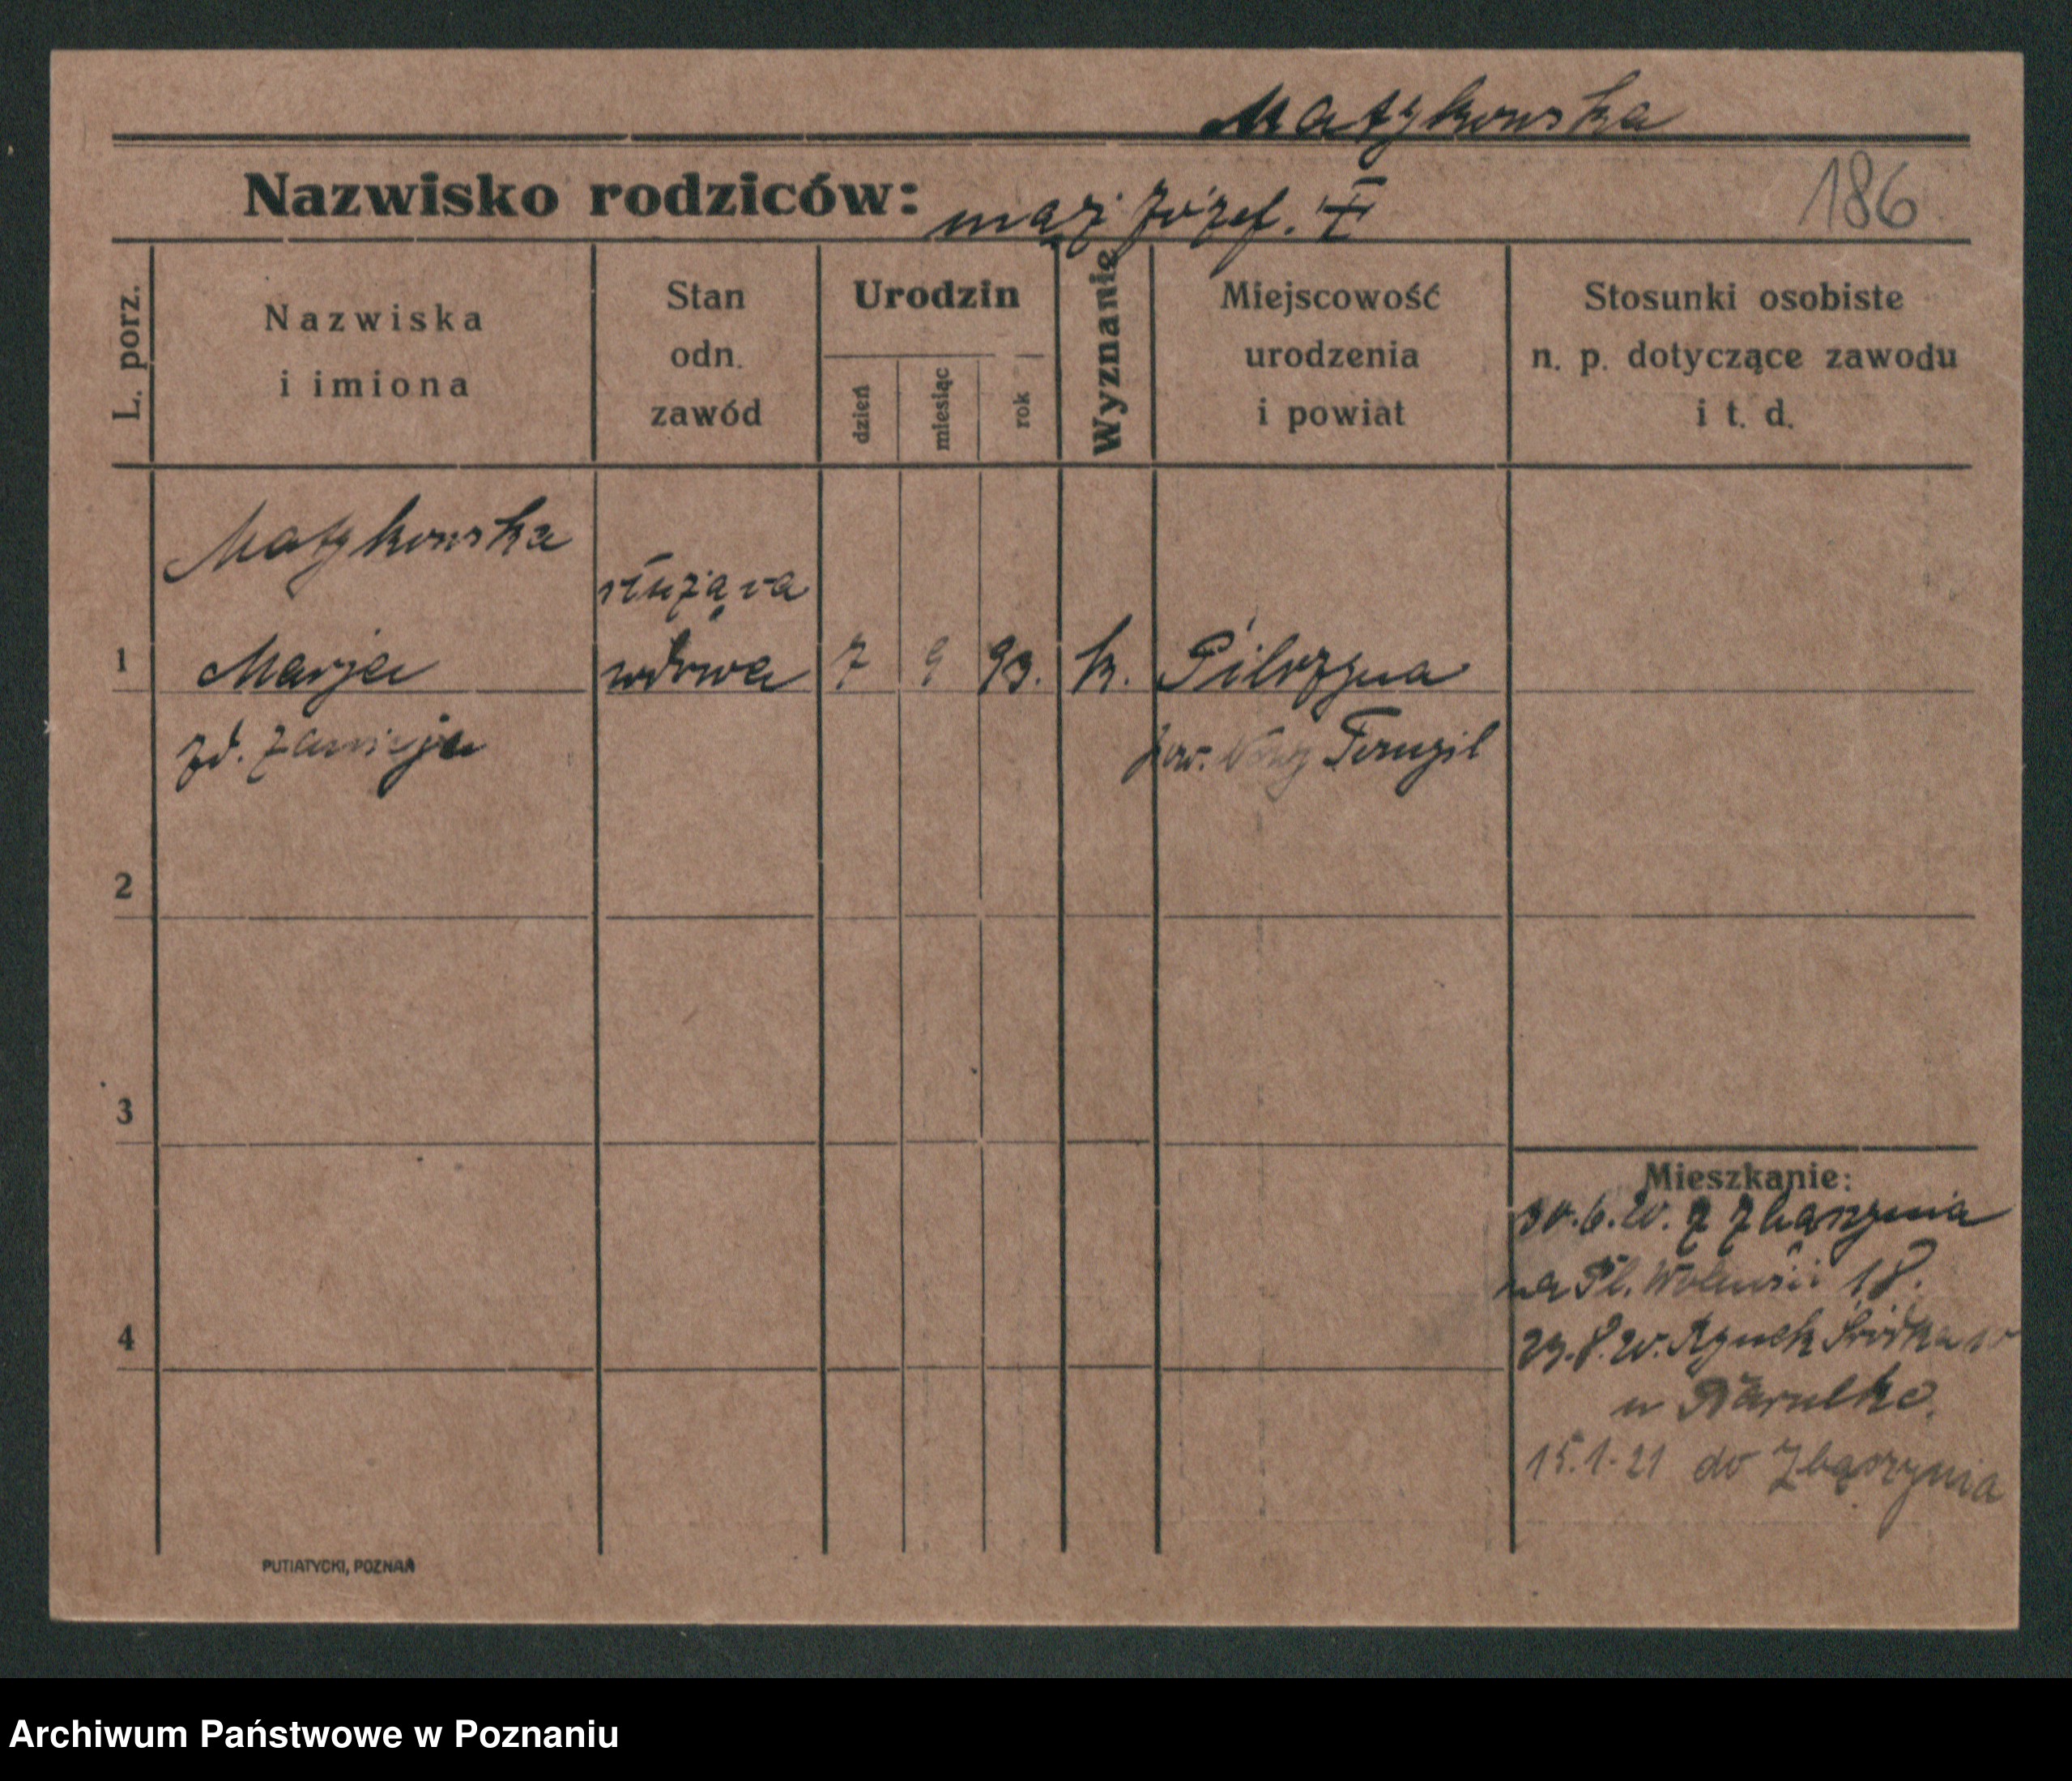 Matykowska
Nazwisko rodziców: mąż Józef. ‡
186
L. porz.
Nazwiska
i imiona
Stan
odn.
zawód
Urodzin
dzień
miesiąc
rok
Wyznanie
Miejscowość
urodzenia
i powiat
Stosunki osobiste
n. p. dotyczące zawodu
i t. d.
Matykowska
służąca
1 Marja wdowa 7 9 93. k.
zd. pow. Nowy Tomyśl
2
3
4
Mieszkanie:
30.6.20. z Zbąszynia
na Pl. Wolności 18.
23.8.20. Rynek Śródka
u
15.1.21 do Zbąszynia
PUTIATYCKI, POZNAŃ
Archiwum Państwowe w Poznaniu